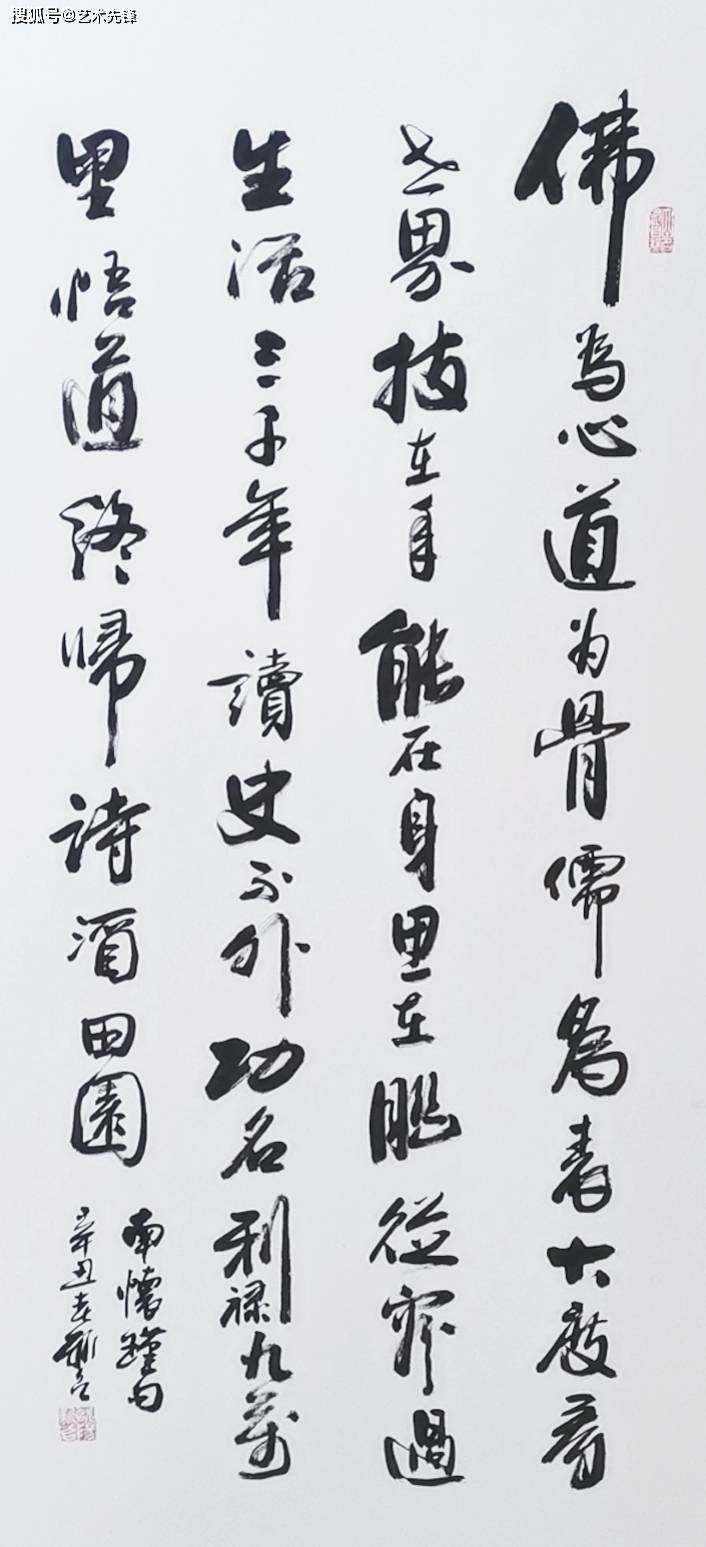 搜狐号@艺术先锋
佛為心道为骨儒為表大度看
世界技在手能在身思在腦從容過
生活三千年讀史不外功名利禄九萬
里悟道終歸詩酒田園
南懷瑾句
辛丑春